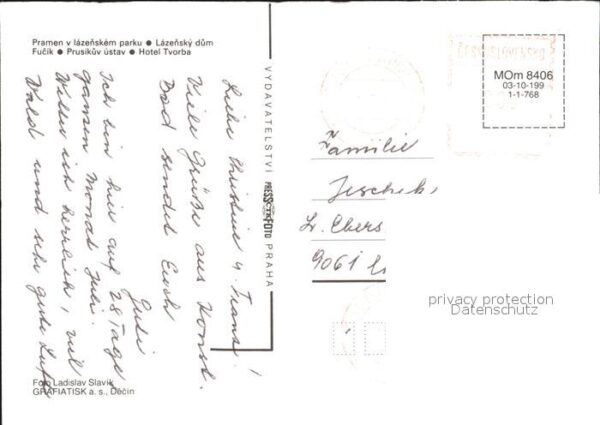 Pramen v lázeňském parku ● Lázeňský dům
Fučík ● Prusíkův ústav ● Hotel Tvorba
Liebe Christine u. Franz!
Viele Grüße aus Konst.
Bad sendet Euch
Judi
Ich bin hier auf 28 Tage
ganzen Monat Juli.
Wetter ist herrlich, viel
Wald und sehr gute Luft
Foto Ladislav Slavík
GRAFIATISK a. s., Děčín
VYDAVATELSTVÍ PRESSFOTO PRAHA
ČESKOSLOVENSKO
MOm 8406
03-10-199
1-1-768
Familie
Jeschek,
Lr. Ebers
9061
privacy protection
Datenschutz